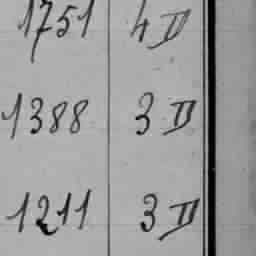 1751 4 II
1388 3 II
1211 3 II